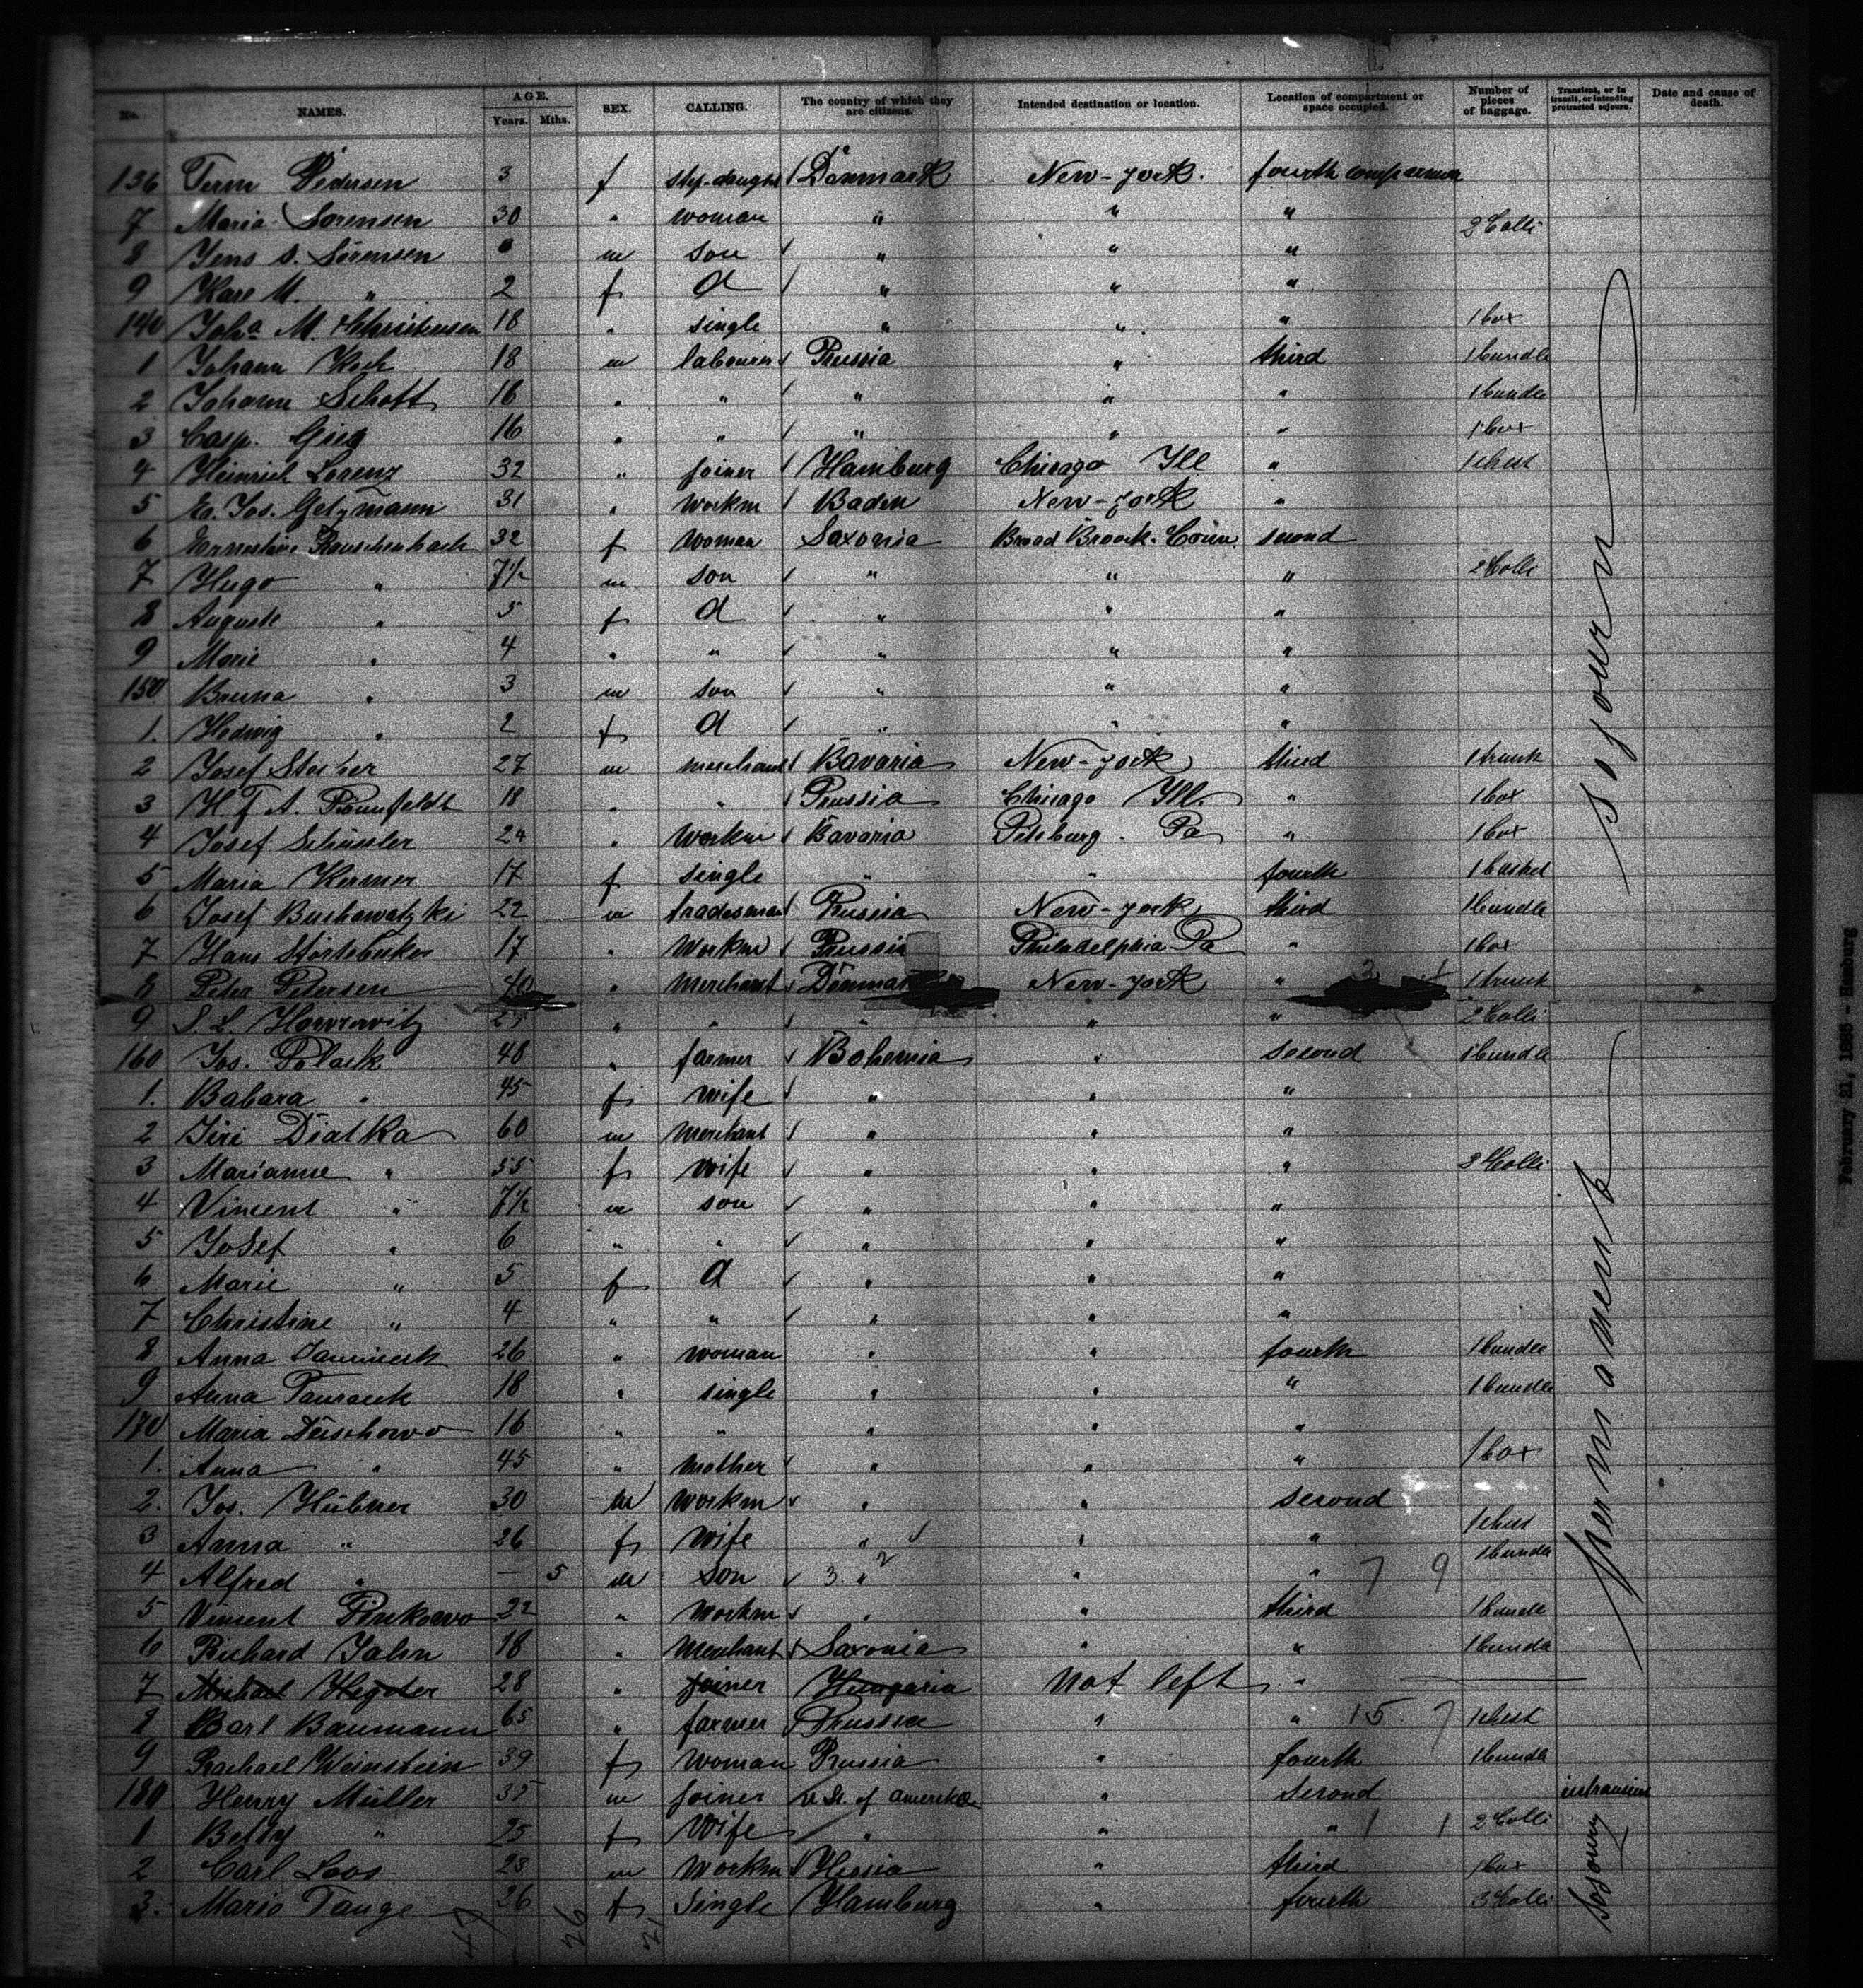 No. NAMES. AGE. Years. Mths. SEX. CALLING. The country of which they are citizens. Intended destination or location. Location of compartment or space occupied. Number of pieces of baggage. Transient, or in transit, or intending protracted sojourn. Date and cause of death.
136 Pedersen 3 f Denmark New-york. fourth
7 Maria Sorensen 30 " woman " " " 2 Colli
8 Jens S. Sörensen m son " " "
9 Kare M. " 2 f d " " "
140 Joha M. Christensen 18 " single " " " 1 box
1 Johann Koch 18 m labourer Prussia " third 1 bundle
2 Johann Schott 16 " " " " " 1 bundle
3 Casp. 16 " " " " " 1 box
4 Heinrich Lorenz 32 " joiner Hamburg Chicago Ill " 1 chest
5 Jos. Getzmann 31 " workm Baden New-york "
6 Ernestine Rauschenbach 32 f woman Saxonia Broad Brook. Conn. second
7 Hugo " 7½ m son " " " 2 Colli
8 Auguste " 5 f d " " "
9 Marie " 4 " " " " "
150 Bruna " 3 m son " " "
1. Hedwig " 2 f d " " "
2 Josef 27 m merchant Bavaria New-york third 1 trunk
3 H. F. A. 18 " " Prussia Chicago Ill. " 1 box
4 Josef Schüssler 24 " workm Bavaria Pitsburg. Pa " 1 box
5 Maria 17 f single " " fourth 1 basket
6 Josef Buchowatzki 22 m tradesman Prussia New-york third 1 bundle
7 Hans Störtebeker 17 " workm Prussia Philadelphia Pa " 1 box
8 Peter Petersen 40 " merchant New-york " 1 trunk
9 S. L. Horrowitz 25 " " " " " 2 Colli
160 Jos. Polack 48 " farmer Bohemia " second 1 bundle
1. Babara " 45 f wife " " "
2 Jiri Diatka 60 m merchant " " "
3 Marianne " 55 f wife " " " 3 Colli
4 Vincent " 7½ m son " " "
5 Josef " 6 " " " " "
6 Marie " 5 f d " " "
7 Christine " 4 " " " " "
8 Anna 26 " woman " " fourth 1 bundle
9 Anna 18 " single " " " 1 bundle
170 Maria 16 " " " " "
1. Anna " 45 " mother " " " 1 box
2. Jos. Hübner 30 m workm " " second
3 Anna " 26 f wife " " " 1 chest
4 Alfred " — 5 m son 3. " " " 7 9 1 bundle
5 Vincent 22 " workm " " third 1 bundle
6 Richard Jahn 18 " merchant Saxonia " " 1 bundle
7 Michael Hegster 28 " joiner Hungaria not left "
8 Carl Baumann 65 " farmer Prussia " " 15 7 1 chest
9 Rachael Weinstein 39 f woman Prussia " fourth 1 bundle
180 Henry Müller 35 m joiner U St. of amerika " second
1 Betty " 25 f wife " " " 1 1 2 Colli
2 Carl Loos 23 m workm Hessia " third 1 box
3. Marie Tange 26 f single Hamburg " fourth 3 Colli
47 26 21
sojourn
permanent
intransient
sojourn
February 21, 1886 - Hamburg